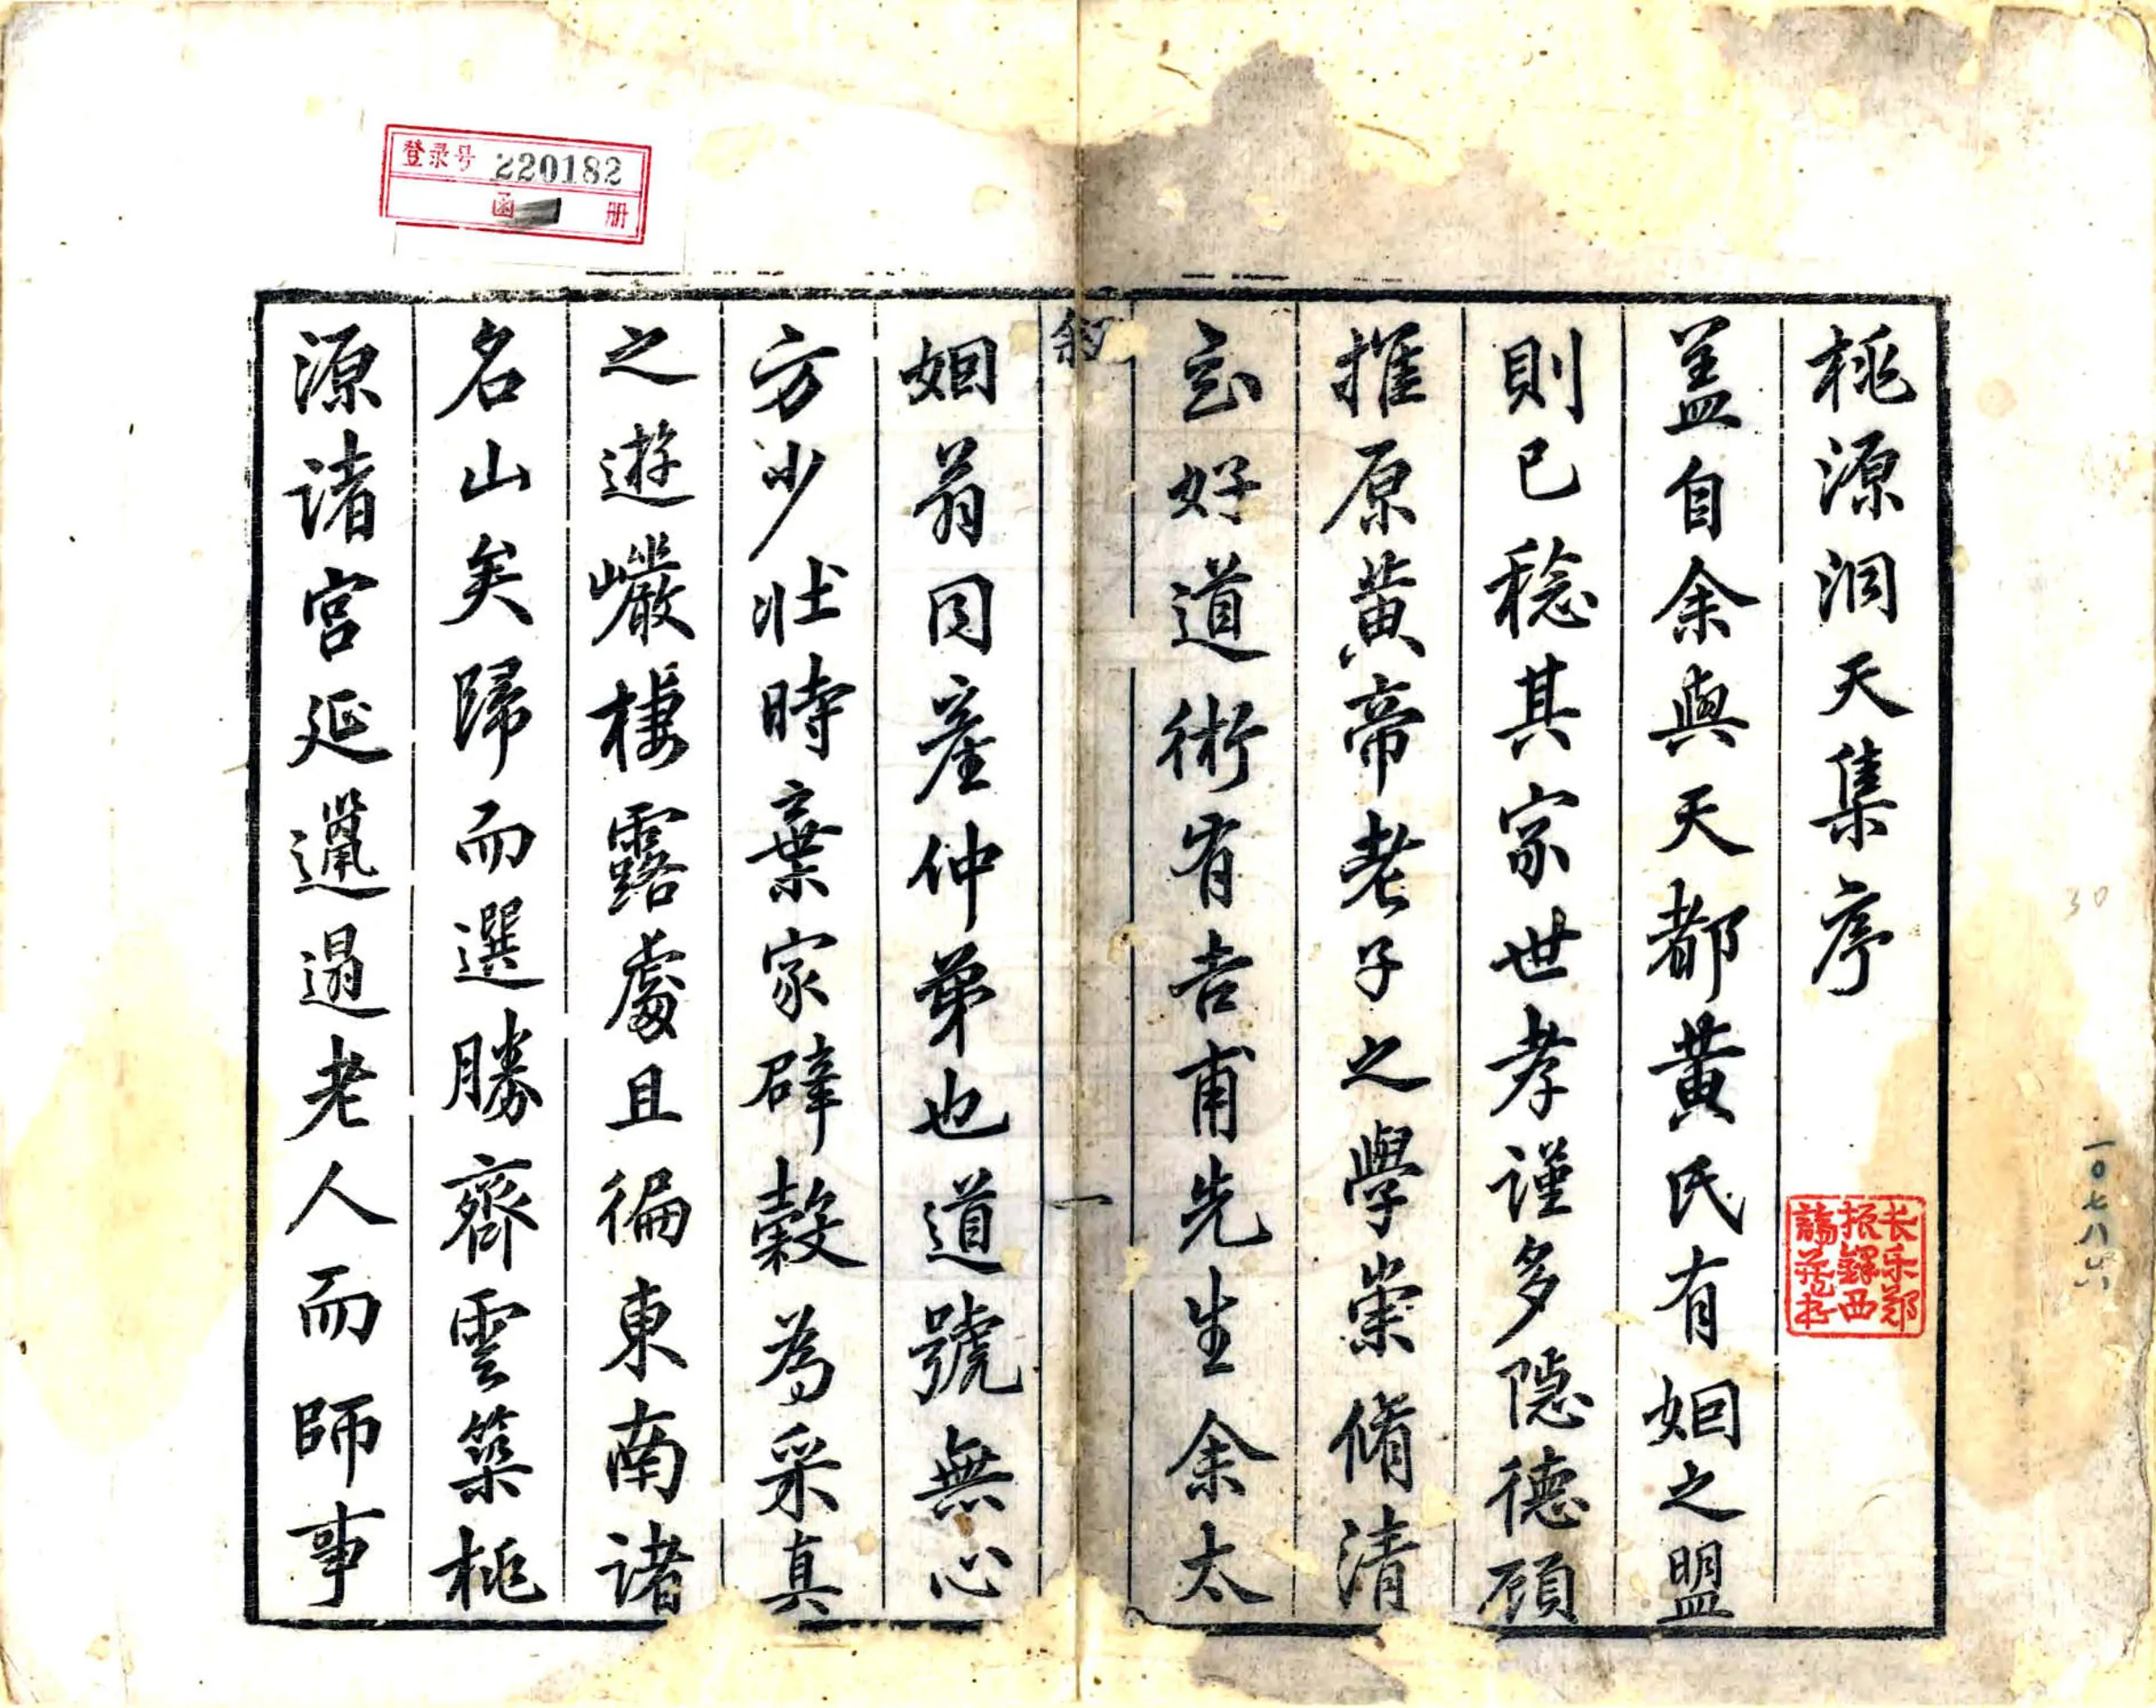 桃源洞天集序
盖自余與天都黄氏有姻之盟
則已稔其家世孝謹多隠德頋
推原黄帝老子之學崇脩清
玄好道術有吉甫先生余太
姻翁同產仲弟也道號無心
方少壯時棄家辟榖為采真
之遊巖棲露處且徧東南諸
名山矣歸而選勝齊雲築桃
源诸宫延邋遢老人而師事
叙
一
长乐郑
振鐸西
諦藏书
登录号 220182
函 册
30